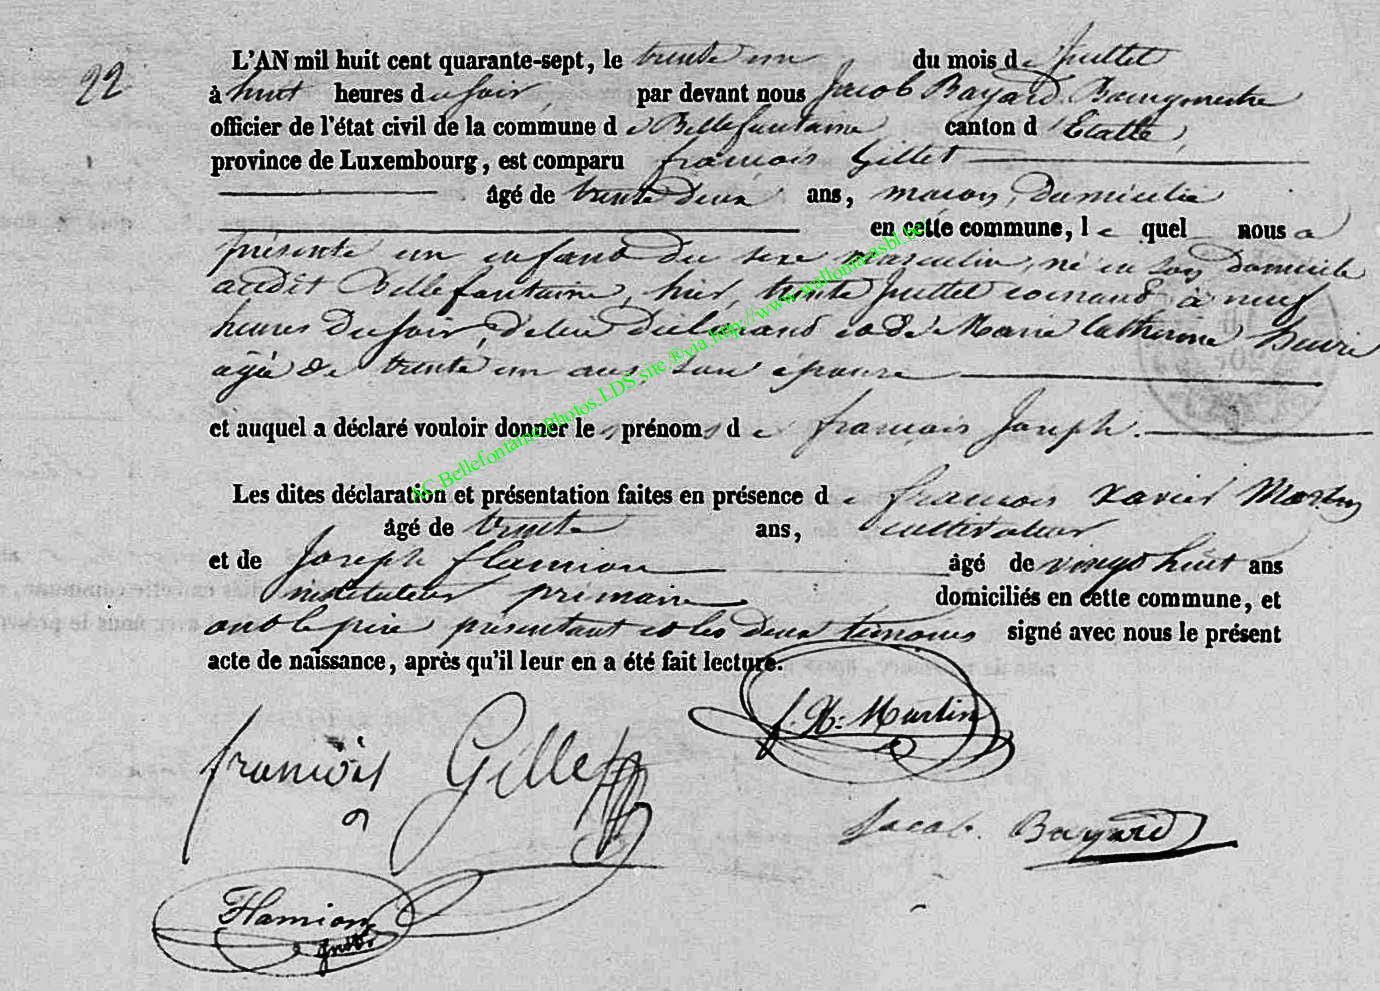 22
L'AN mil huit cent quarante-sept, le trente un du mois de Juillet
à huit heures du soir, par devant nous Jacob Bayard Bourgmestre
officier de l'état civil de la commune de Bellefontaine canton d'Etalle,
province de Luxembourg, est comparu françois Gillet
âgé de trente deux ans, maçon, domicilié
en cette commune, le quel nous a
présenté un enfant du sexe masculin, né en son domicile
audit Bellefontaine, hier, trente Juillet courant à neuf
heures du soir, de lui déclarant et de Marie Catherine
agée de trente un ans, son épouse
et auquel a déclaré vouloir donner les prénoms de françois Joseph.
Les dites déclaration et présentation faites en présence de françois Xavier Martin
âgé de trente ans, cultivateur
et de Joseph flamion âgé de vingt huit ans
instituteur primaire domiciliés en cette commune, et
ont le père présentant et les deux témoins signé avec nous le présent
acte de naissance, après qu'il leur en a été fait lecture.
f. X. Martin
françois Gillet
Jacob Bayard
Flamion
AC.Bellefontaine.Photos.LDS.site ®via http://www.wallonia-asbl.be/